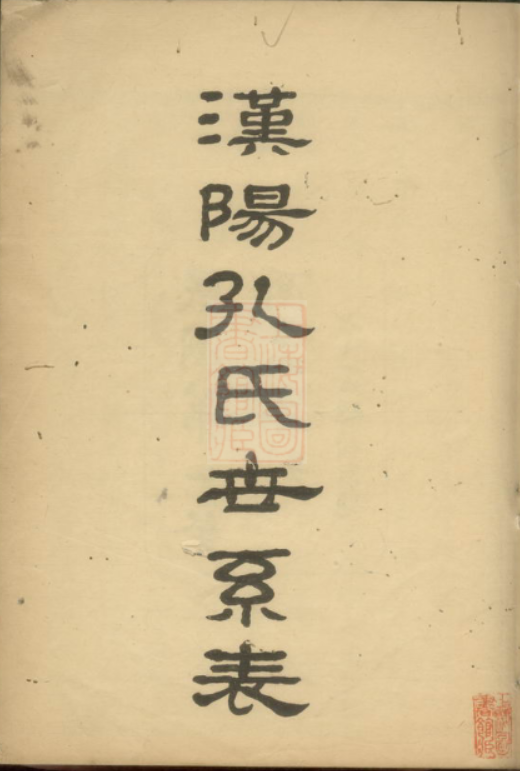 漢陽孔氏世系表